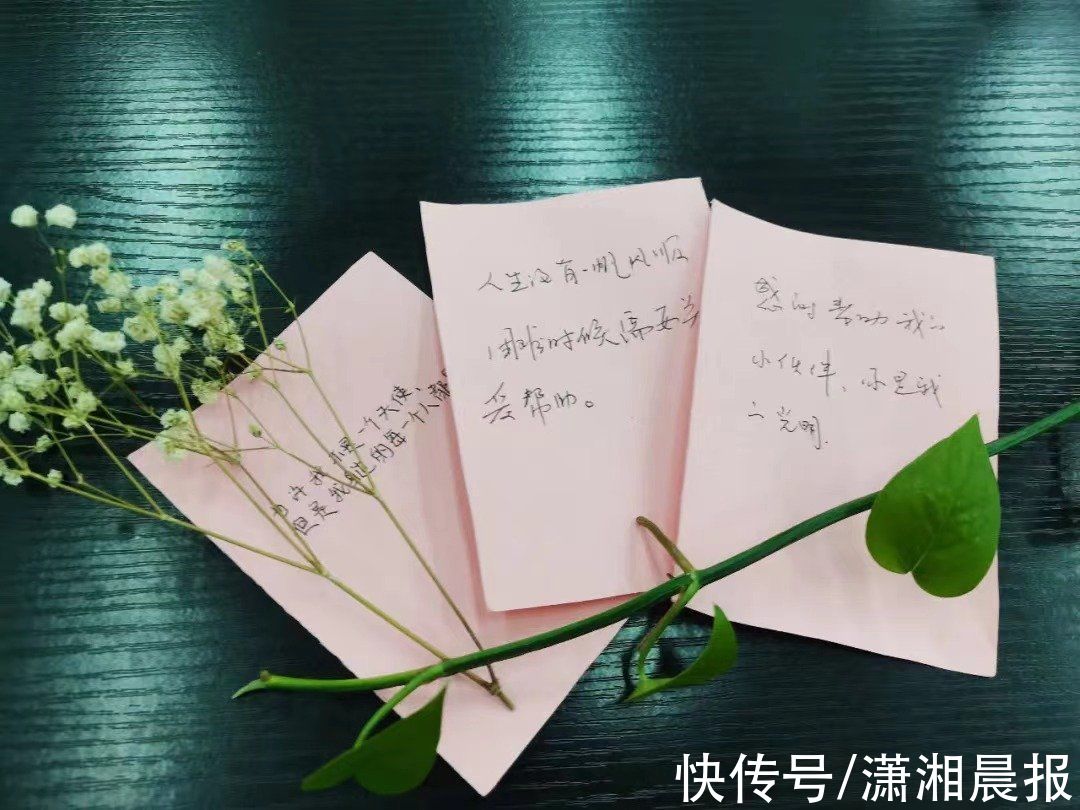 也许我不是一个天使、
但是我帮过的每一个人都
人生没有一帆风顺
困难时候需要关
爱帮助。
感谢帮助我的
小伙伴、你是我
的光明.
快传号/潇湘晨报